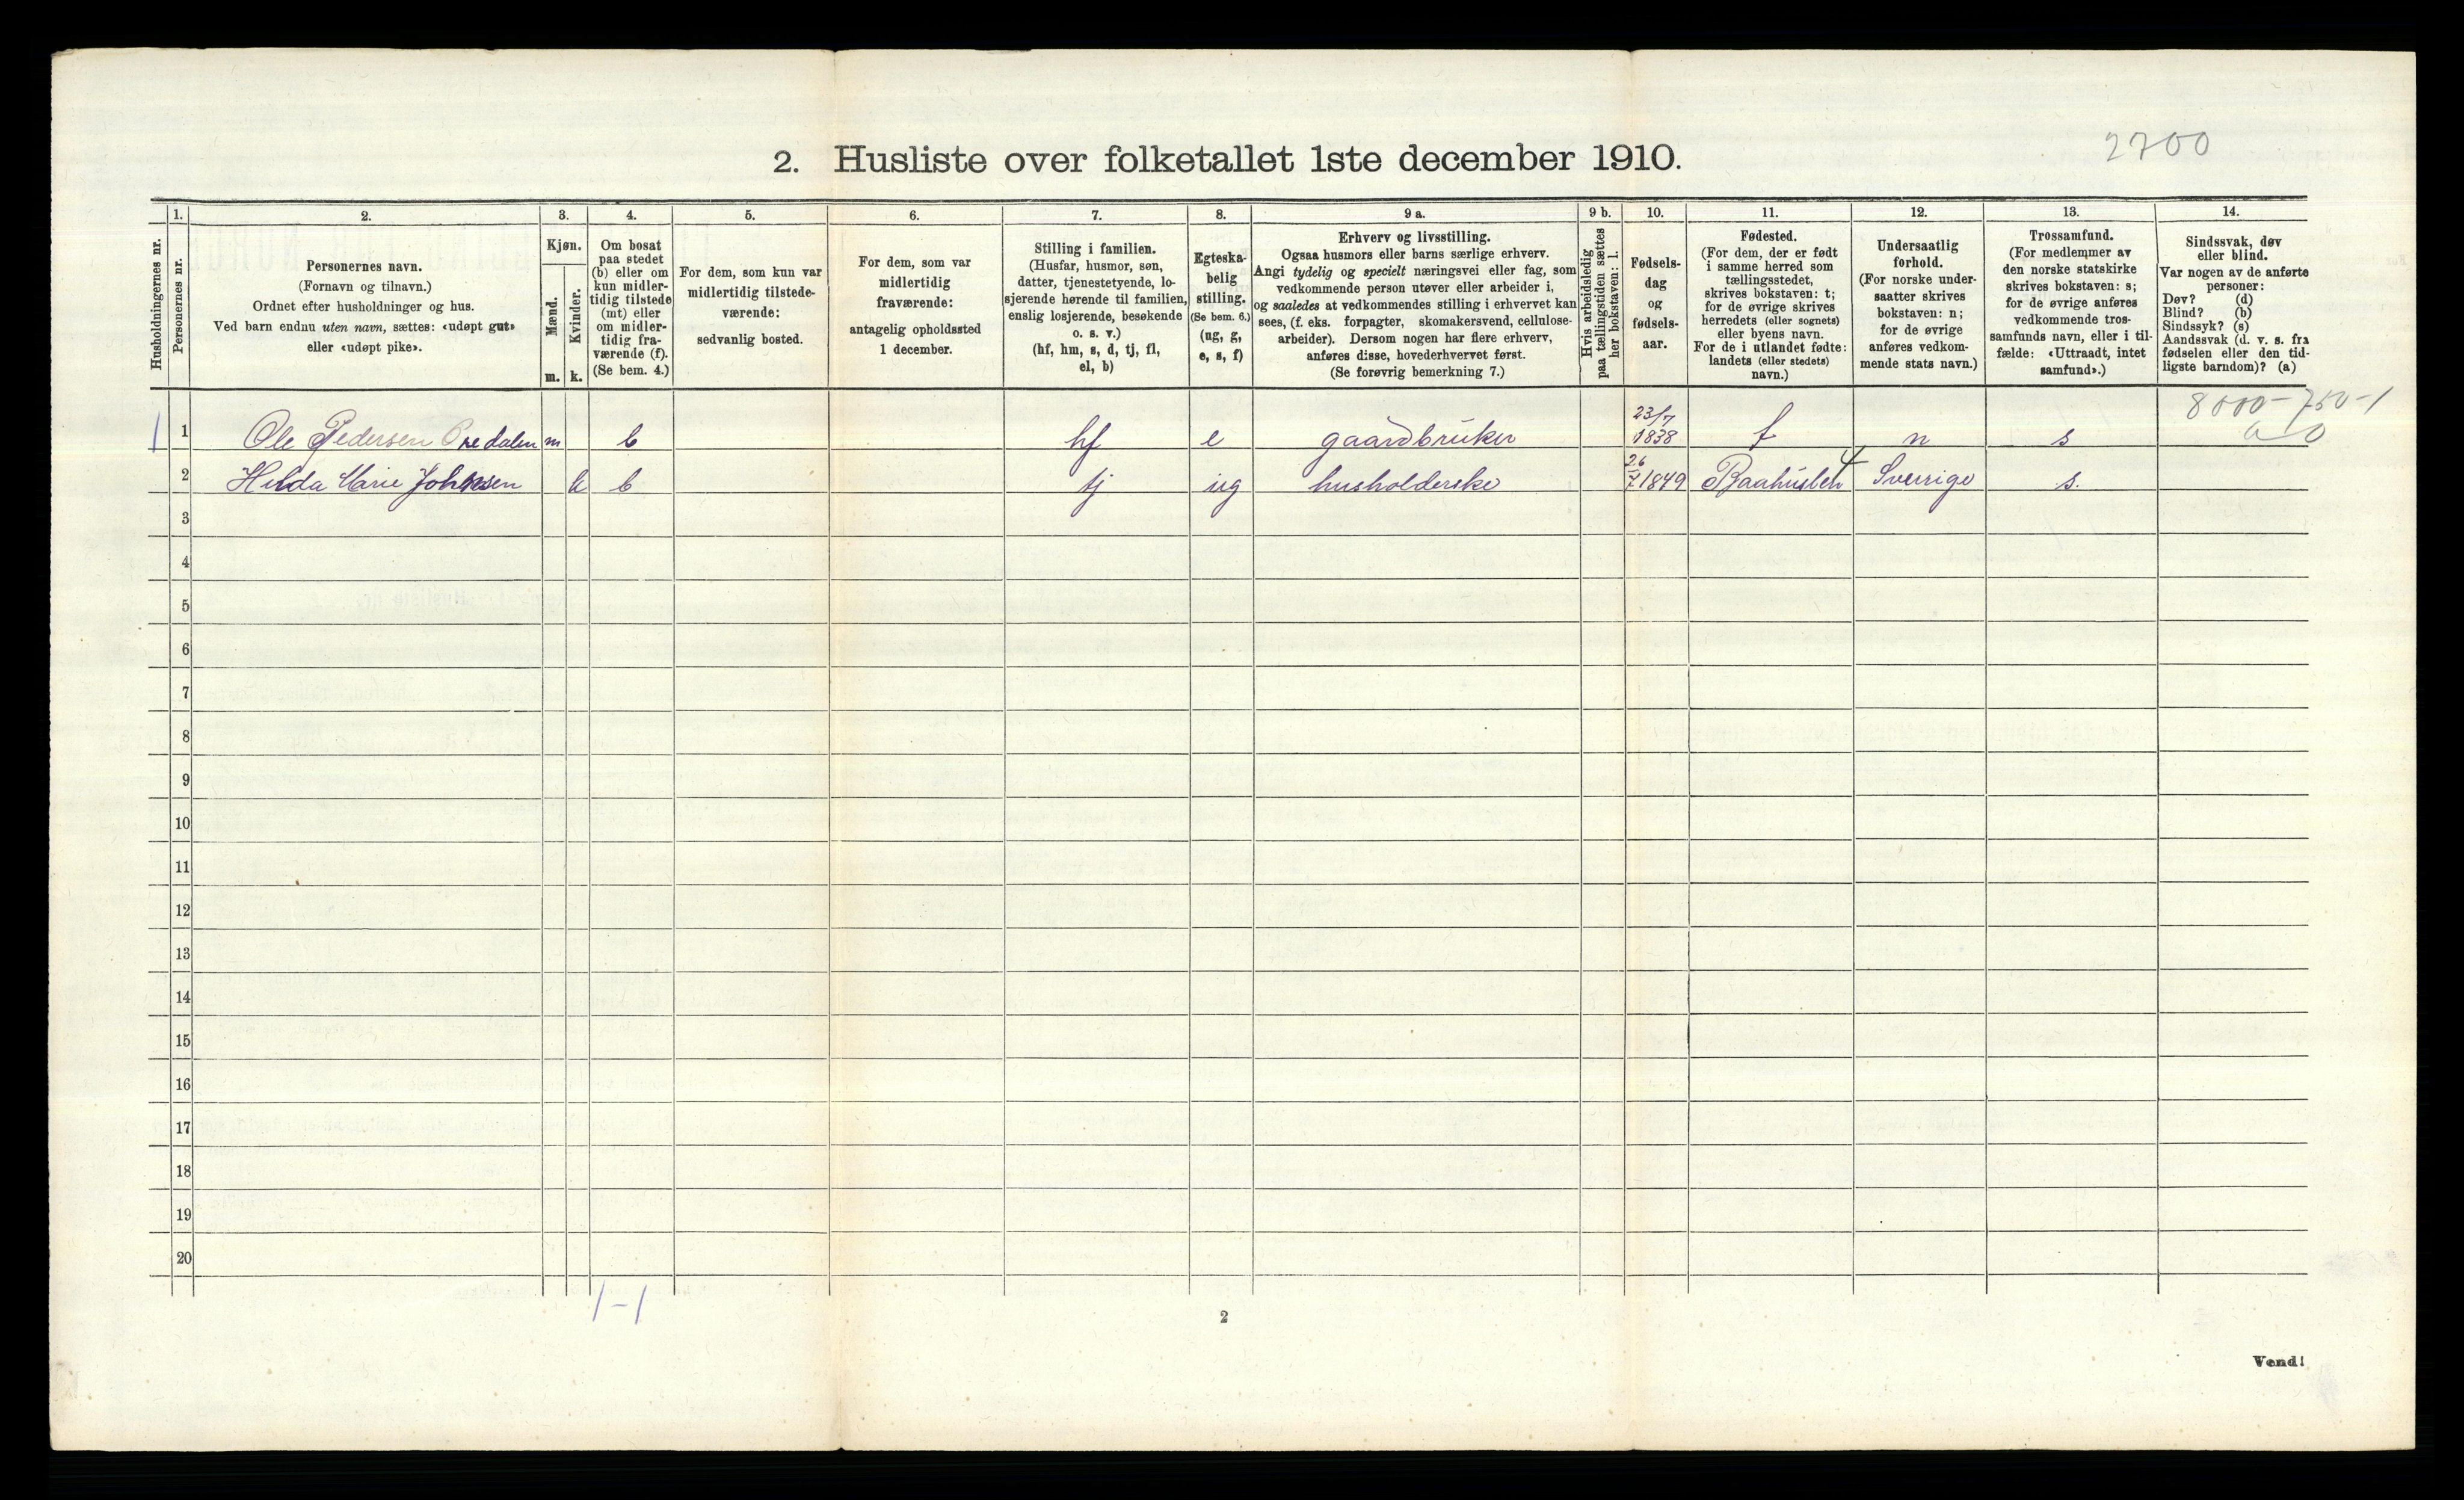 2700
2. Husliste over folketallet 1ste december 1910.
Husholdningernes nr.
1.
Personernes nr.
2.
Personernes navn.
(Fornavn og tilnavn.)
Ordnet efter husholdninger og hus.
Ved barn endnu uten navn, sættes: «udøpt gut»
eller «udøpt pike».
3.
Kjøn.
Mænd.
Kvinder.
m.
k.
4.
Om bosat
paa stedet
(b) eller om
kun midler-
tidig tilstede
(mt) eller
om midler-
tidig fra-
værende (f).
(Se bem. 4.)
5.
For dem, som kun var
midlertidig tilstede-
værende:
sedvanlig bosted.
6.
For dem, som var
midlertidig
fraværende:
antagelig opholdssted
1 december.
7.
Stilling i familien.
(Husfar, husmor, søn,
datter, tjenestetyende, lo-
sjerende hørende til familien,
enslig losjerende, besøkende
o. s. v.)
(hf, hm, s, d, tj, fl,
el, b)
8.
Egteska-
belig
stilling.
(Se bem. 6.)
(ug, g,
e, s, f)
9 a.
Erhverv og livsstilling.
Ogsaa husmors eller barns særlige erhverv.
Angi tydelig og specielt næringsvei eller fag, som
vedkommende person utøver eller arbeider i,
og saaledes at vedkommendes stilling i erhvervet kan
sees, (f. eks. forpagter, skomakersvend, cellulose-
arbeider). Dersom nogen har flere erhverv,
anføres disse, hovederhvervet først.
(Se forøvrig bemerkning 7.)
9 b.
Hvis arbeidsledig
paa tællingstiden sættes
her bokstaven: l.
10.
Fødsels-
dag
og
fødsels-
aar.
11.
Fødested.
(For dem, der er født
i samme herred som
tællingsstedet,
skrives bokstaven: t;
for de øvrige skrives
herredets (eller sognets)
eller byens navn.
For de i utlandet fødte:
landets (eller stedets)
navn.)
12.
Undersaatlig
forhold.
(For norske under-
saatter skrives
bokstaven: n;
for de øvrige
anføres vedkom-
mende stats navn.)
13.
Trossamfund.
(For medlemmer av
den norske statskirke
skrives bokstaven: s;
for de øvrige anføres
vedkommende tros-
samfunds navn, eller i til-
fælde: «Uttraadt, intet
samfund».)
14.
Sindssvak, døv
eller blind.
Var nogen av de anførte
personer:
Døv? (d)
Blind? (b)
Sindssyk? (s)
Aandssvak (d. v. s. fra
fødselen eller den tid-
ligste barndom)? (a)
8000-750-1
a 0
1 1 Ole Pedersen m b hf e gaardbruker 23/7 1838 t n s
2 Hilda Marie Johnsen k b tj ug husholderske 26/7 1849 Baahuslen 4 Sverrige s.
3
4
5
6
7
8
9
10
11
12
13
14
15
16
17
18
19
20
1-1
2
Vend!